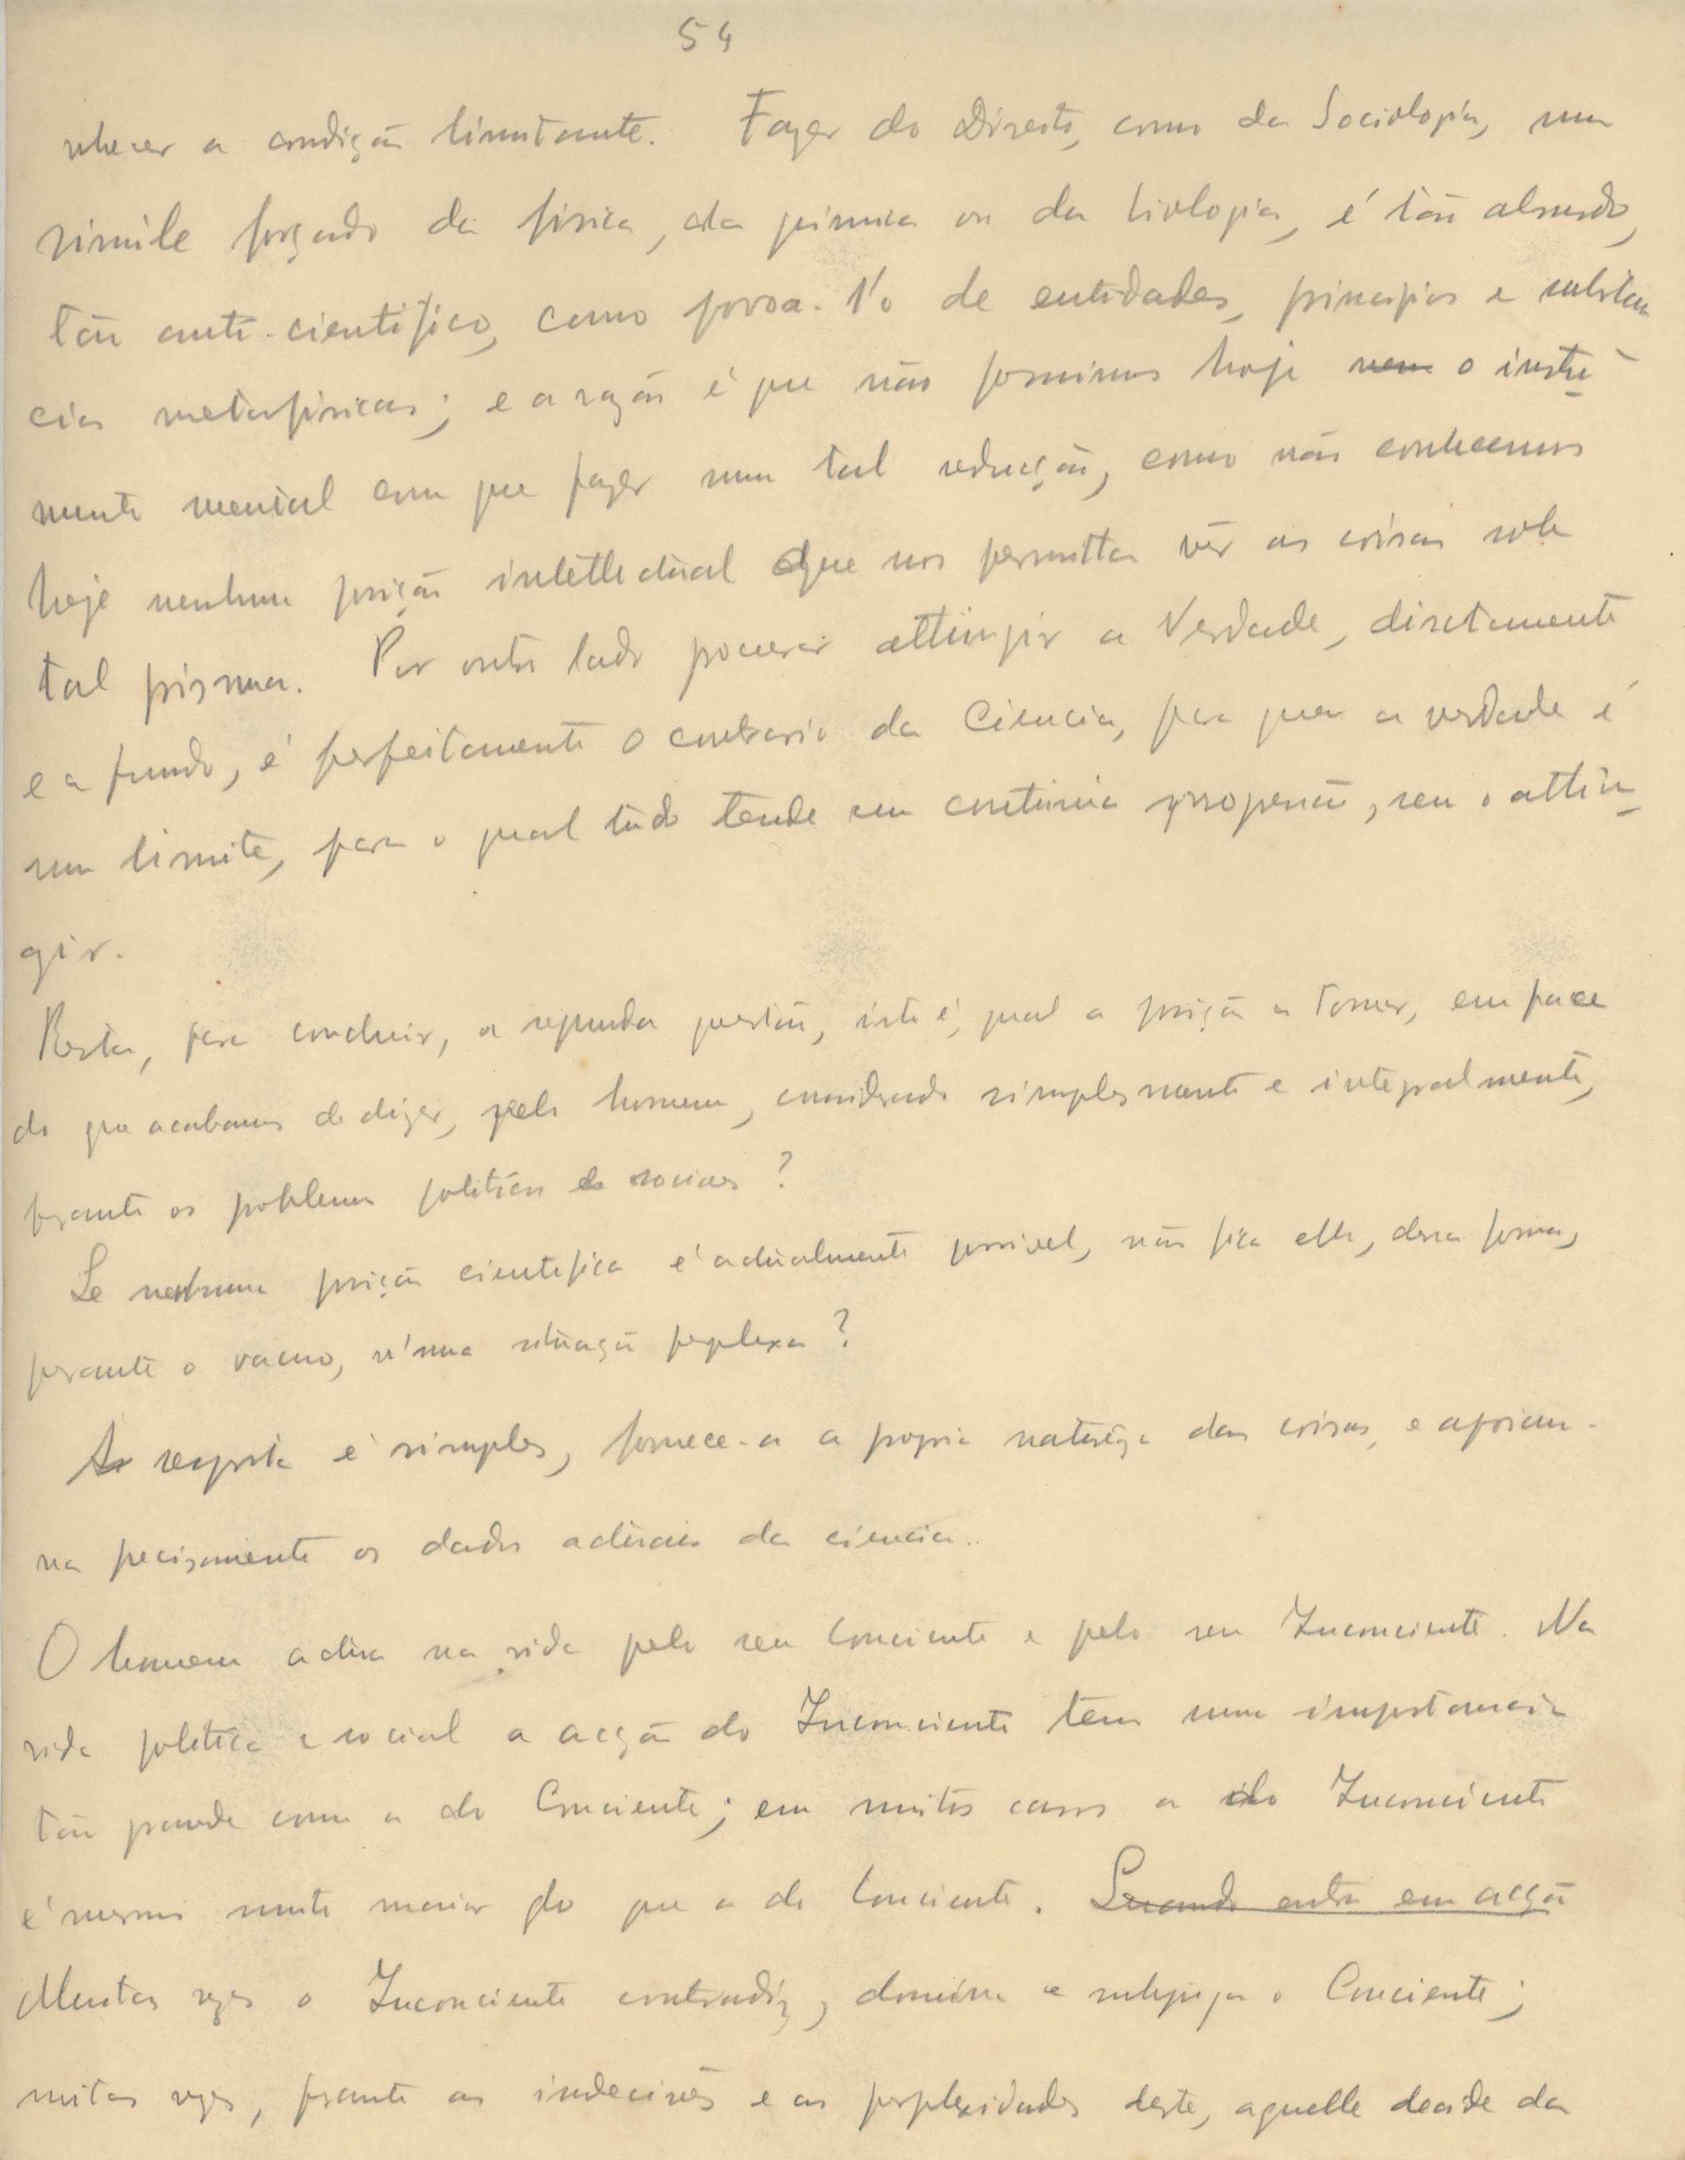 54
nhecer a condição limitante. Fazer do Direito, como da Sociologia, um
simile forçado da fisica, da quimica ou da biologia, é tão absurdo,
tão anti-cientifico, como povoa-l'o de entidades, principios e substan
cias metafisicas; e a razão é que não possuimos hoje nem o instru-
mento mental com que fazer uma tal redução, como não conhecemos
hoje nenhuma posição intellectual que nos permitta vêr as coisas sob
tal prisma. Por outro lado procurar attingir a Verdade, diretamente
e a fundo, é perfeitamente o contrario da Ciencia, para quem a verdade é
um limite, para o qual tudo tende em continua progressão, sem o attin
gir.
Resta, para concluir, a segunda questão, isto é, qual a posição a tomar, em face
do que acabamos de dizer, pelo homem, considerado simplesmente e integralmente,
perante os problemas politicos e sociaes?
Se nenhuma posição cientifica é actualmente possivel, não fica elle, dessa forma,
perante o vacuo, n'uma situação perplexa?
A resposta é simples, fornece-a a propria natureza das coisas, e apoiam-
na precisamente os dados actuaes da ciencia.
O homem actua na vida pelo seu Conciente e pelo seu Inconciente. Na
vida politica e social a acção do Inconciente tem uma importancia
tão grande como a do Conciente; em muitos casos a do Inconciente
é mesmo muito maior do que a do Conciente. Quando entra em acção
Muitas vezes o Inconciente contradiz, domina e subjuga o Conciente;
muitas vezes, perante as indecisões e as perplexidades deste, aquelle decide da